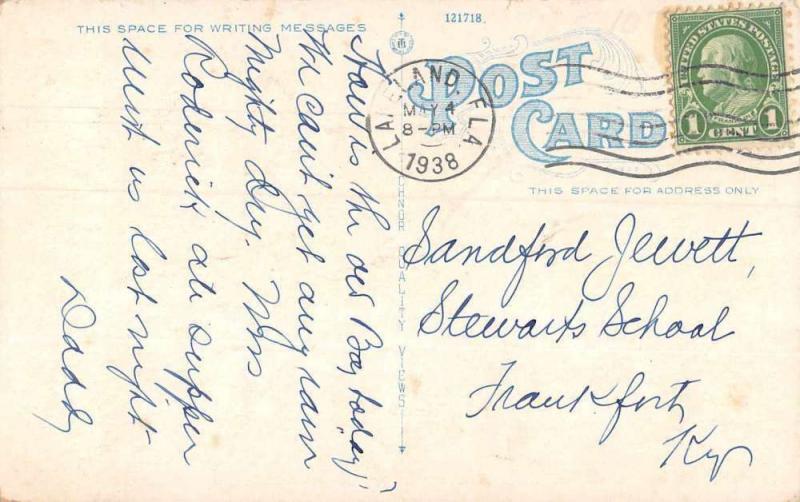 THIS SPACE FOR WRITING MESSAGES
121718.
POST
CARD
LAKELAND, FLA
MAY 4
8-PM
1938
UNITED STATES POSTAGE
FRANKLIN
1 CENT 1
THIS SPACE FOR ADDRESS ONLY
How is the old Boy today?
We can't get any rain
Mighty dry. Mrs
Roderick ate supper
with us last night
Daddy
Sandford Jewett,
Stewarts School
Frankfort,
Ky
TICHNOR QUALITY VIEWS